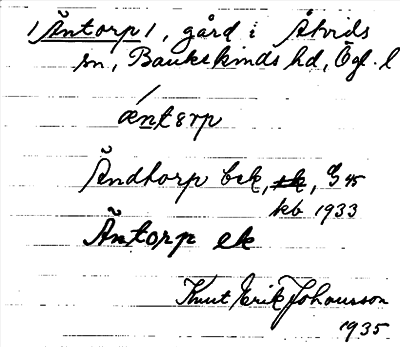 /Äntorp/, gård i Åtvids
sn, Bankekinds hd, Ögl. l
æntorp
Ändtorp bek, ek, G 45
kb 1933
Äntorp ek
Knut Erik Johansson
1935